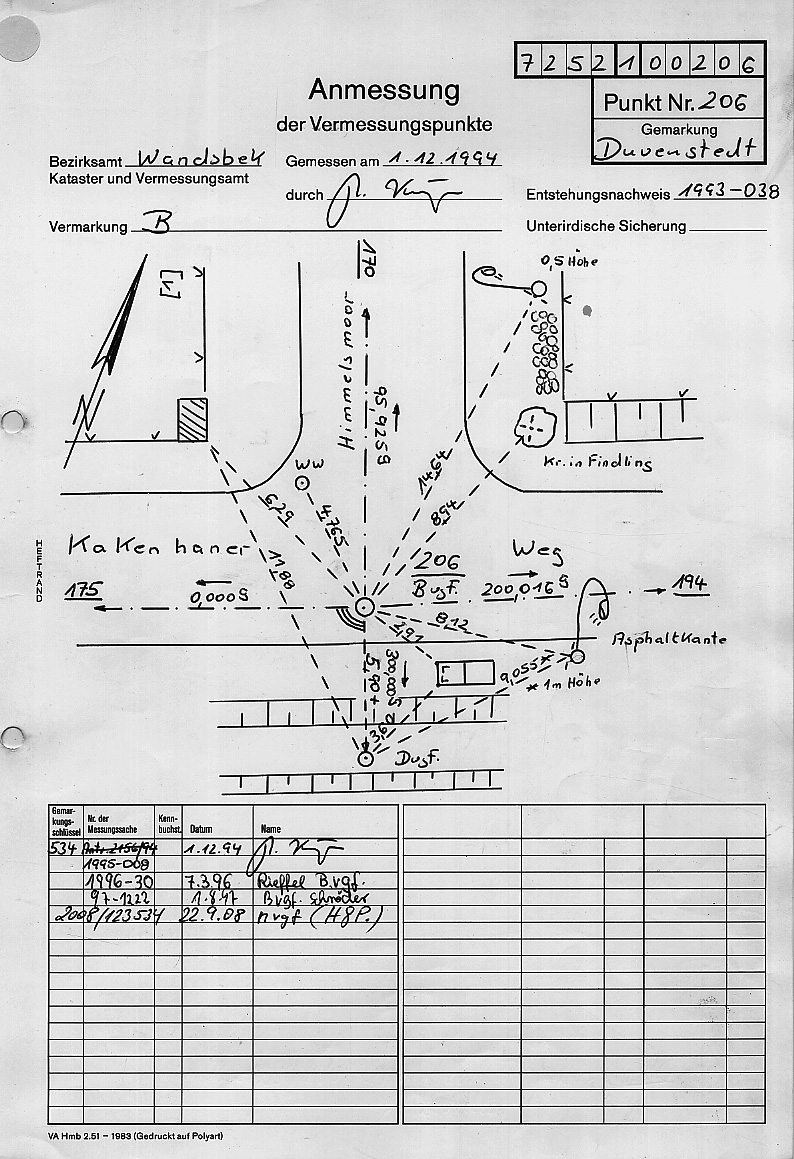 7252100206
Anmessung
der Vermessungspunkte
Punkt Nr. 206
Gemarkung
Duvenstedt
Bezirksamt Wandsbek
Kataster und Vermessungsamt
Gemessen am 1.12.1994
durch
Entstehungsnachweis 1993-038
Vermarkung B
Unterirdische Sicherung
170
[1]
0,5 Höhe
Himmelsmoor
95,925g
N
Kr. in Findling
WW
14,64
8,94
6,29
4,765
11,88
Kakenhaner
Weg
206
Bvgf.
175
0,000g
200,016g
194
HEFTRAND
8,12
2,91
Asphaltkante
300,000g
5,90
9,055*
* 1m Höhe
3,60
Dvgf.
Gemar-
kungs-
schlüssel
Nr. der
Messungssache
Kenn-
buchst.
Datum
Name
534 Antr. 2156/94 1.12.94
1995-008
1996-30 7.3.96 Rieffel B.vgf.
97-1222 1.8.97 Bvgf. Schröder
2008/123534 22.9.08 nvgf (HBP.)
VA Hmb 2.51 – 1983 (Gedruckt auf Polyart)